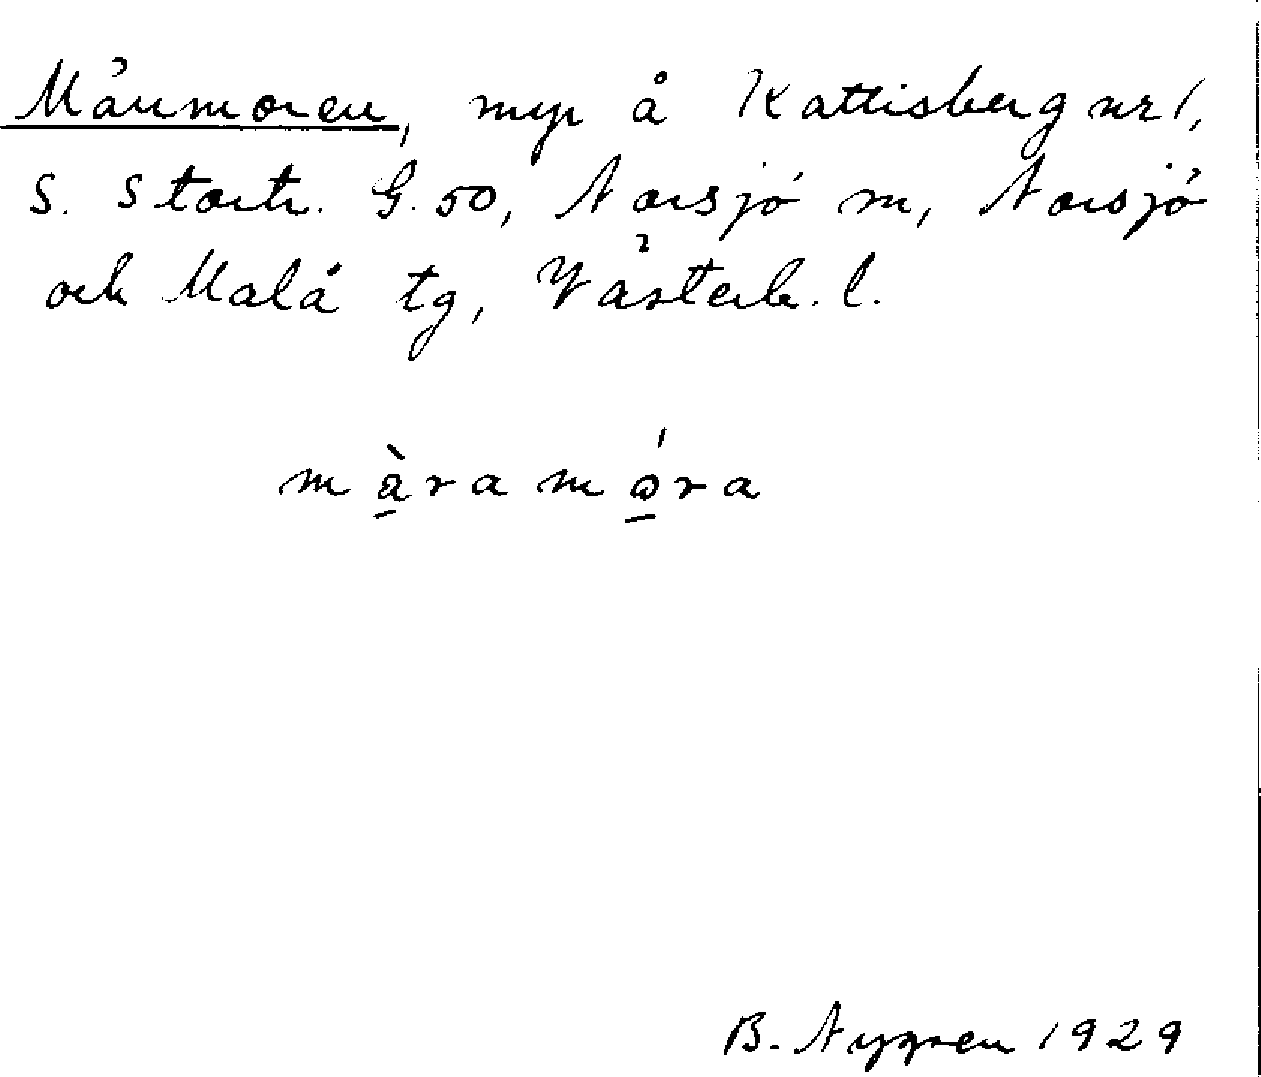 Mårmoren, myr å Kattisberg nr 1,
S. Stortr. G. 50, Norsjö sn, Norsjö
och Malå tg, Västerb. l.
màra móra
B. Nygren 1929